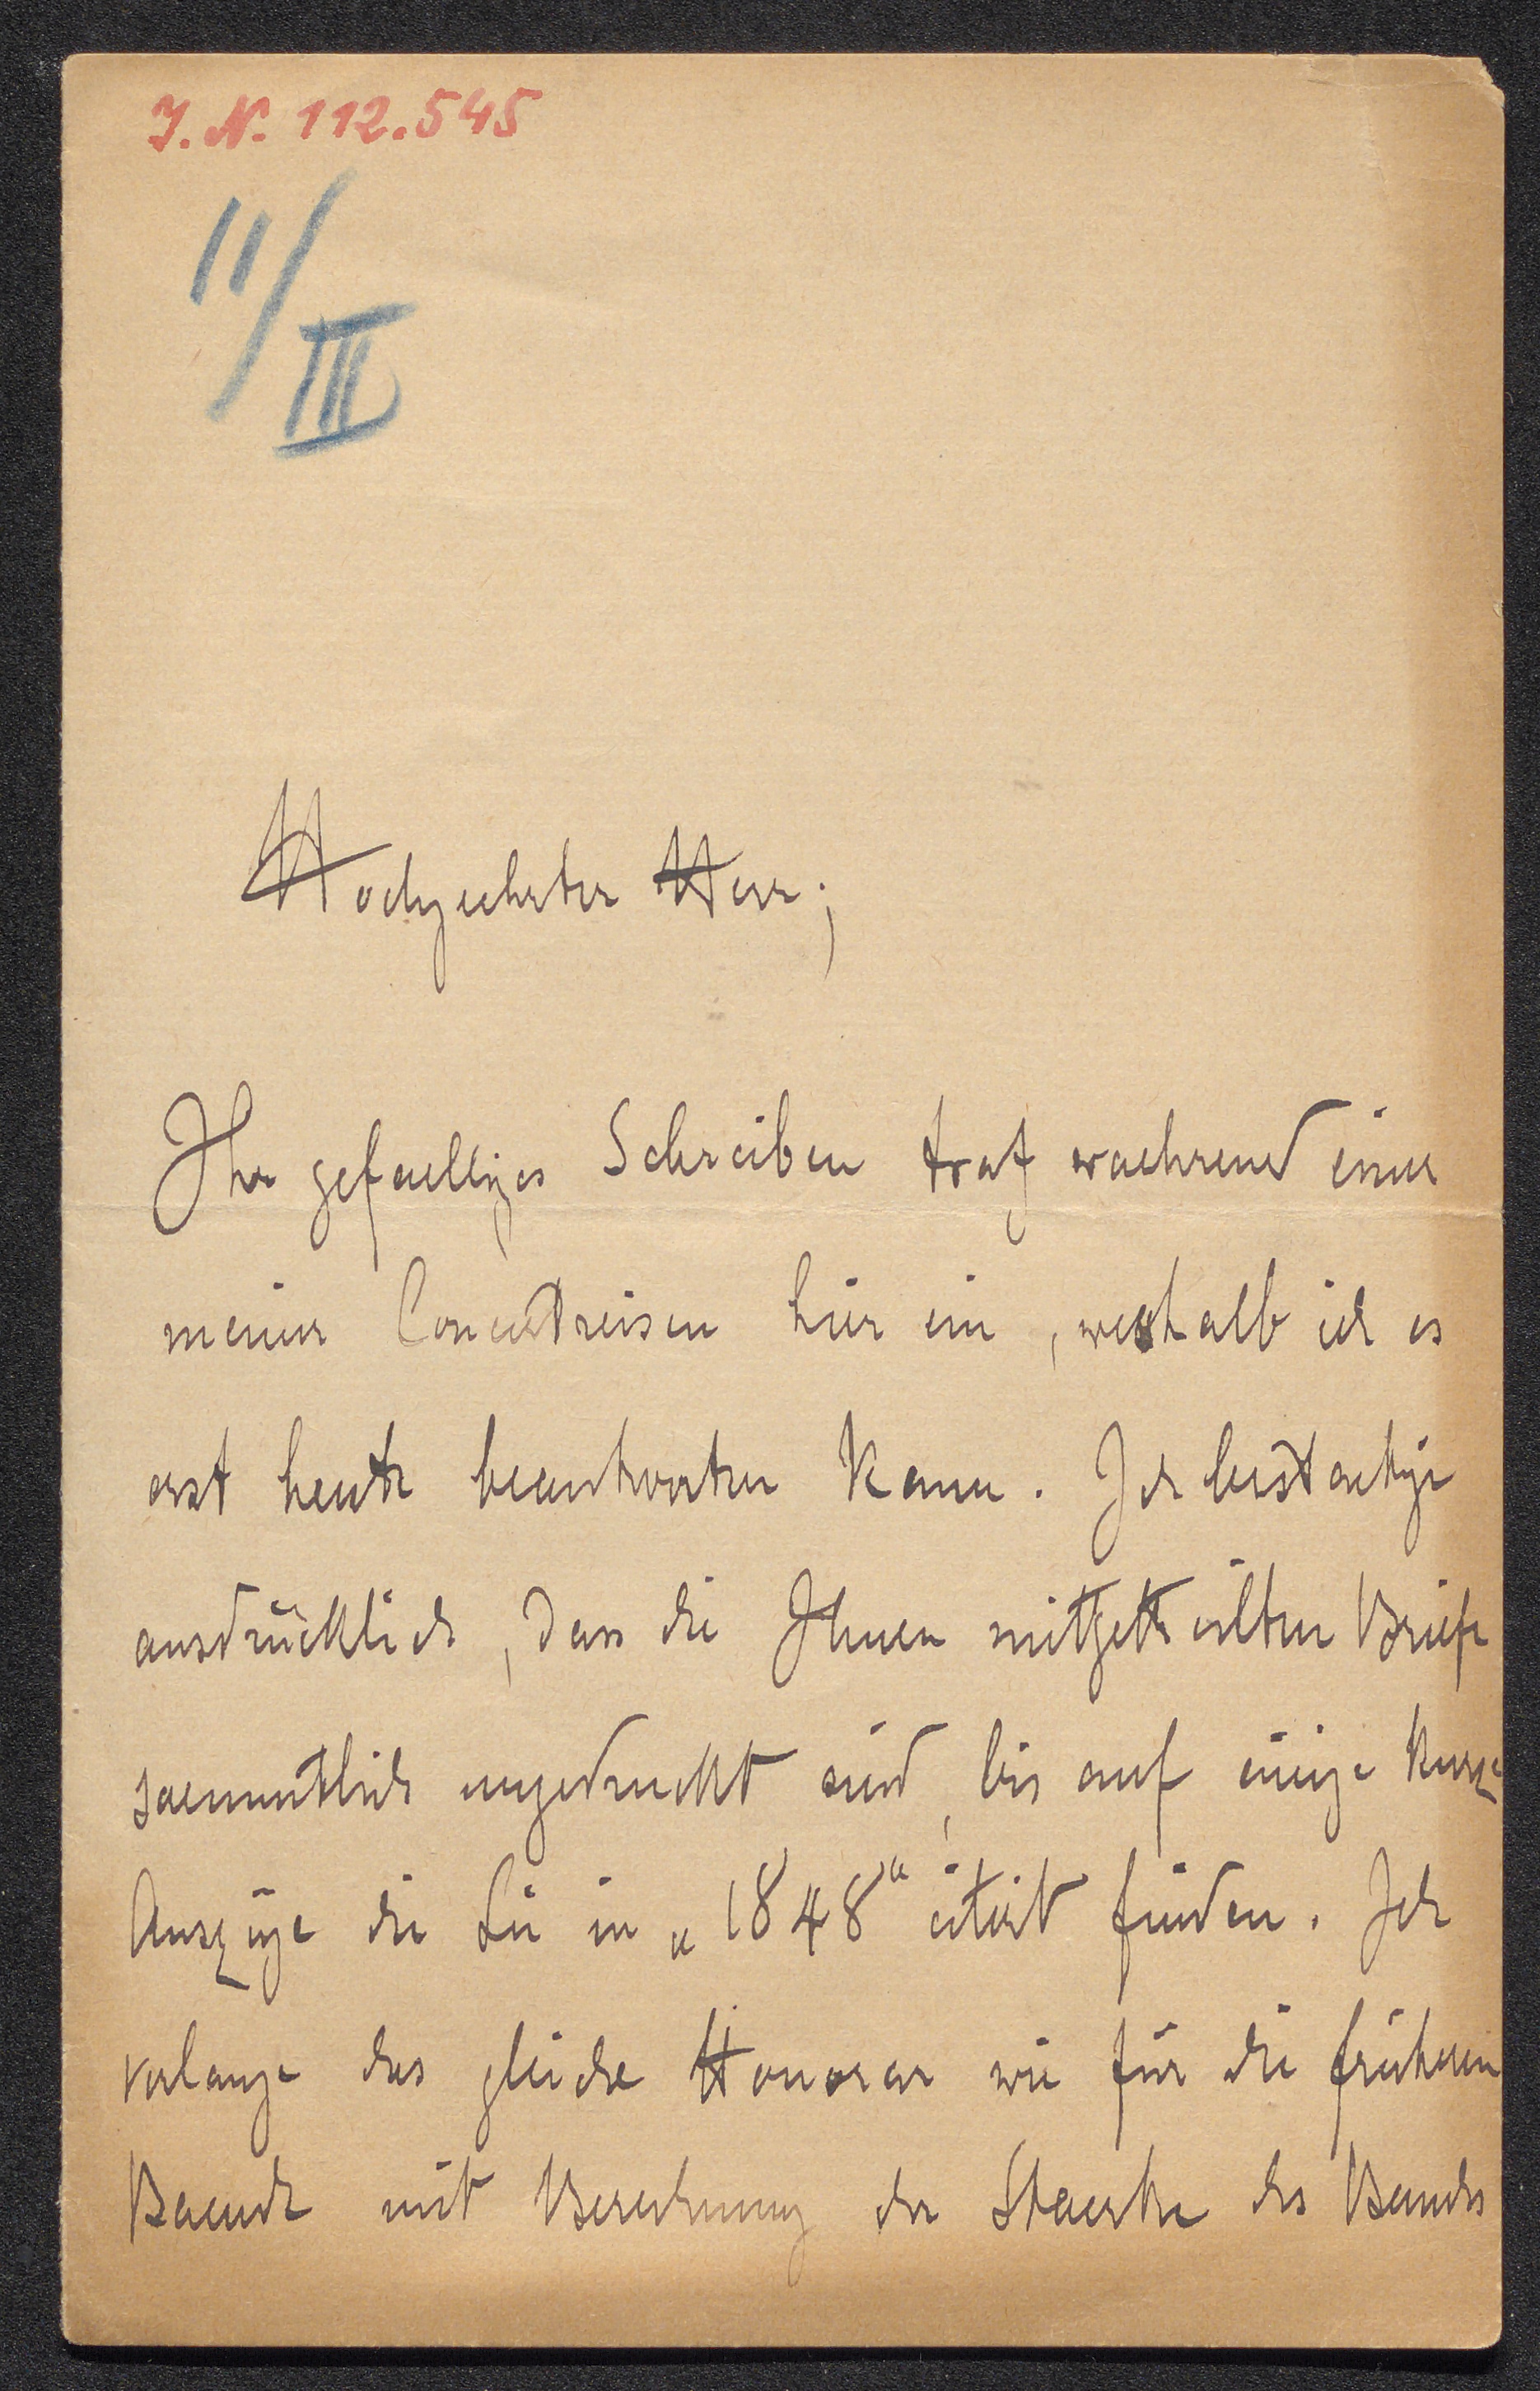 J. N. 112.545
11/III
Hochgeehrter Herr;
Ihr gefaelliges Schreiben traf waehrend einer
meiner Concertreisen hier ein, weshalb ich es
erst heute beantworten kann. Ich bestaetige
ausdrücklich, dass die Ihnen mitgetheilten Briefe
saemmtlich ungedruckt sind, bis auf einige kurze
Auszüge die Sie in „1848“ citirt finden. Ich
verlange das gleiche Honorar wie für die früheren
Baende mit Berechnung der Staerke des Bandes